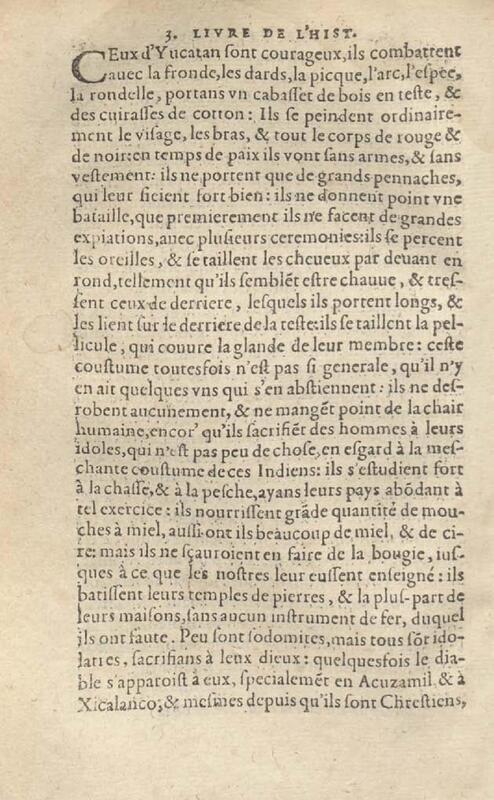 3. LIVRE DE L'HIST.
CEux d'Yucatan sont courageux, ils combattent
auec la fronde, les dards, la picque, l'arc, l'espee,
la rondelle, portans vn cabasset de bois en teste, &
des cuirasses de cotton: Ils se peindent ordinaire-
ment le visage, les bras, & tout le corps de rouge &
de noir: en temps de paix ils vont sans armes, & sans
vestement: ils ne portent que de grands pennaches,
qui leur sieient fort bien: ils ne donnent point vne
bataille, que premierement ils n'e facent de grandes
expiations, auec plusieurs ceremonies: ils se percent
les oreilles, & se taillent les cheueux par deuant en
rond, tellement qu'ils semblẽt estre chauue, & tres-
sent ceux de derriere, lesquels ils portent longs, &
les lient sur le derriere de la teste: ils se taillent la pel-
licule, qui couure la glande de leur membre: ceste
coustume toutesfois n'est pas si generale, qu'il n'y
en ait quelques vns qui s'en abstiennent: ils ne des-
robent aucunement, & ne mangẽt point de la chair
humaine, encor' qu'ils sacrifiẽt des hommes à leurs
idoles, qui n'est pas peu de chose, en esgard à la mes-
chante coustume de ces Indiens: ils s'estudient fort
à la chasse, & à la pesche, ayans leurs pays abõdant à
tel exercice: ils nourrissent grãde quantité de mou-
ches à miel, aussi ont ils beaucoup de miel, & de ci-
re: mais ils ne sçauroient en faire de la bougie, ius-
ques à ce que les nostres leur eussent enseigné: ils
batissent leurs temples de pierres, & la plus-part de
leurs maisons, sans aucun instrument de fer, duquel
ils ont faute. Peu sont sodomites, mais tous sõt ido-
latres, sacrifians à leux dieux: quelquesfois le dia-
ble s'apparoist à eux, specialemẽt en Acuzamil & à
Xicalanco; & mesmes depuis qu'ils sont Chrestiens,